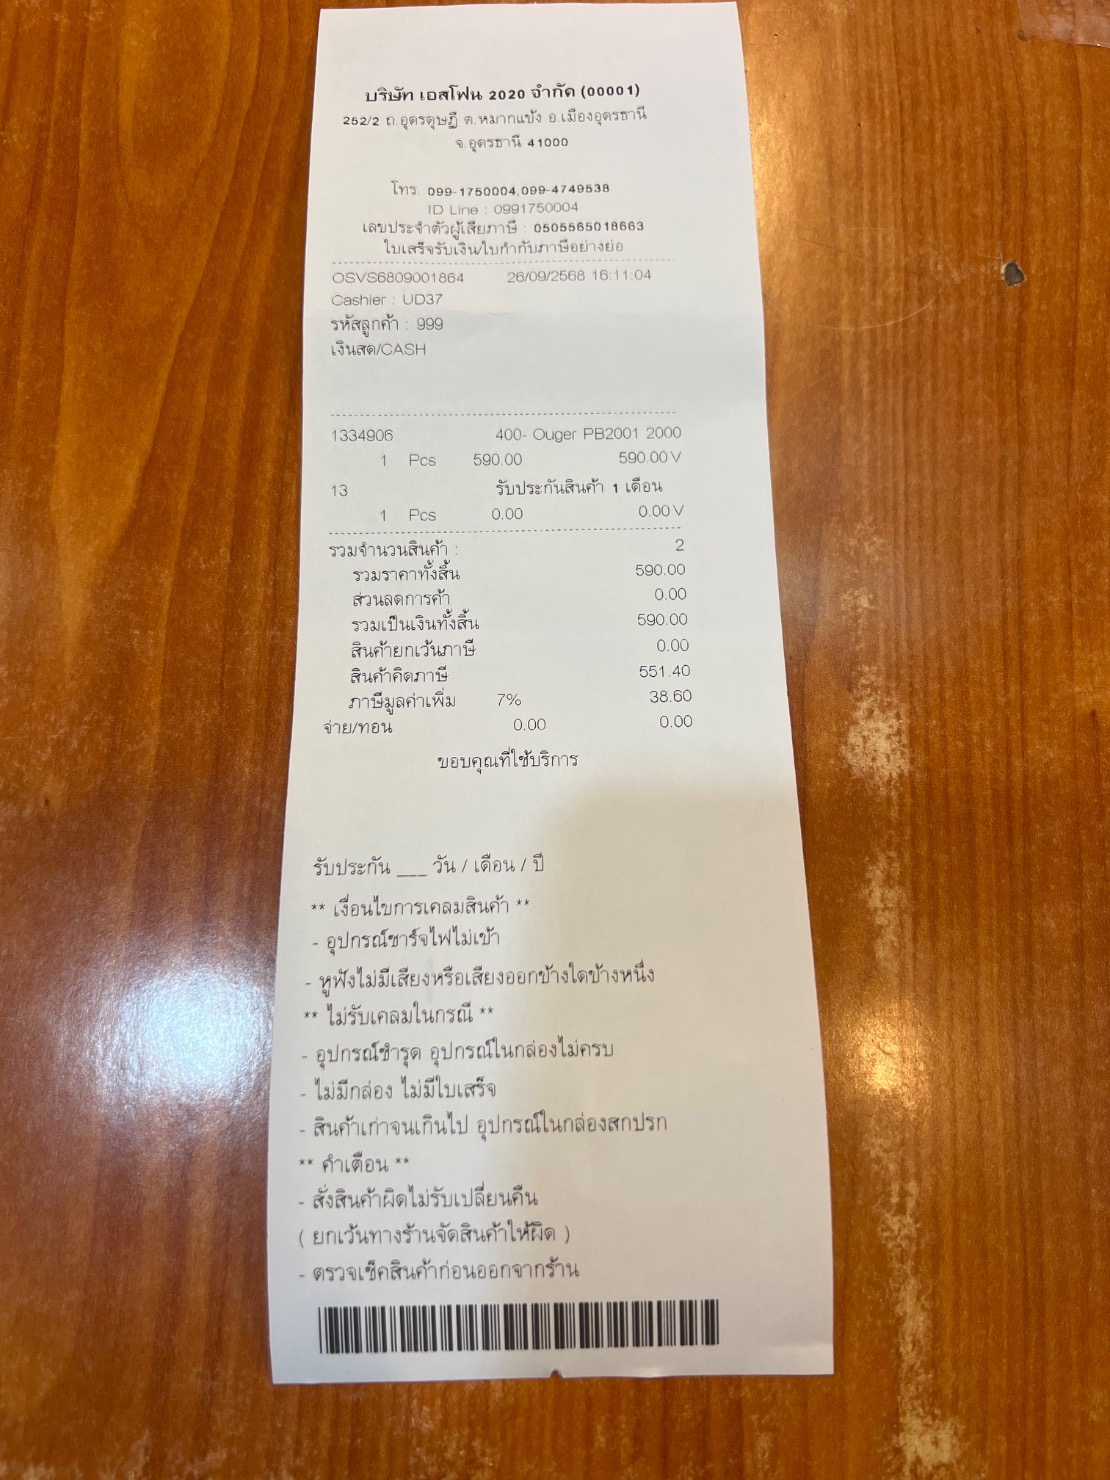 บริษัท เอสโฟน 2020 จำกัด (00001)
252/2 ถ.อุดรดุษฎี ต.หมากแข้ง อ.เมืองอุดรธานี
จ.อุดรธานี 41000
โทร. 099-1750004,099-4749538
ID Line : 0991750004
เลขประจำตัวผู้เสียภาษี : 0505565018663
ใบเสร็จรับเงิน/ใบกำกับภาษีอย่างย่อ
OSVS6809001864 26/09/2568 16:11:04
Cashier : UD37
รหัสลูกค้า : 999
เงินสด/CASH
1334906 400- Ouger PB2001 2000
1 Pcs 590.00 590.00 V
13 รับประกันสินค้า 1 เดือน
1 Pcs 0.00 0.00 V
รวมจำนวนสินค้า : 2
รวมราคาทั้งสิ้น 590.00
ส่วนลดการค้า 0.00
รวมเป็นเงินทั้งสิ้น 590.00
สินค้ายกเว้นภาษี 0.00
สินค้าคิดภาษี 551.40
ภาษีมูลค่าเพิ่ม 7% 38.60
จ่าย/ทอน 0.00 0.00
ขอบคุณที่ใช้บริการ
รับประกัน ___ วัน / เดือน / ปี
** เงื่อนไขการเคลมสินค้า **
- อุปกรณ์ชาร์จไฟไม่เข้า
- หูฟังไม่มีเสียงหรือเสียงออกข้างใดข้างหนึ่ง
** ไม่รับเคลมในกรณี **
- อุปกรณ์ชำรุด อุปกรณ์ในกล่องไม่ครบ
- ไม่มีกล่อง ไม่มีใบเสร็จ
- สินค้าเก่าจนเกินไป อุปกรณ์ในกล่องสกปรก
** คำเตือน **
- สั่งสินค้าผิดไม่รับเปลี่ยนคืน
( ยกเว้นทางร้านจัดสินค้าให้ผิด )
- ตรวจเช็คสินค้าก่อนออกจากร้าน